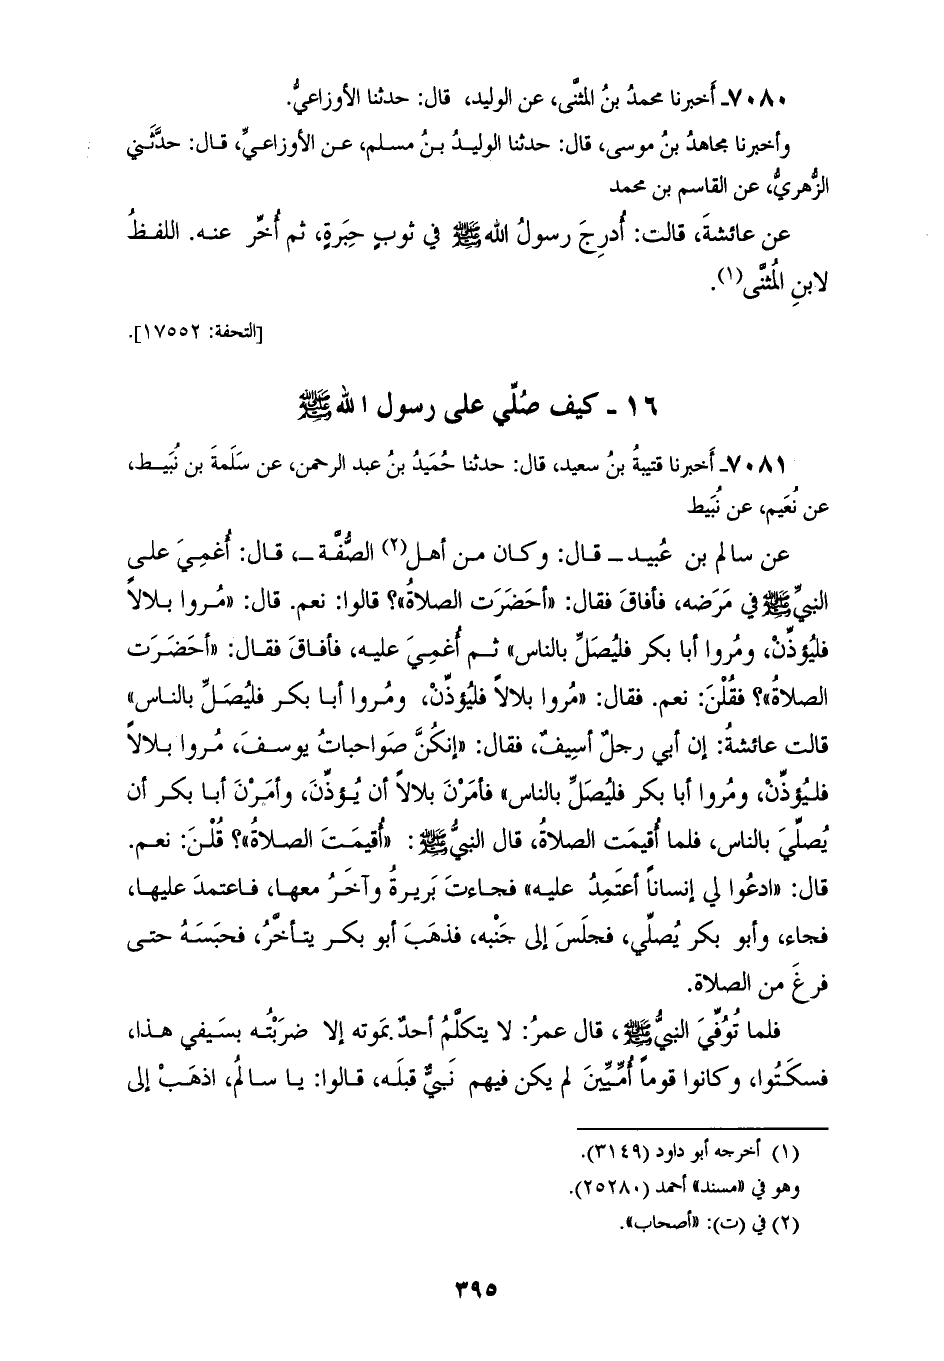 ٧٠٨٠ـ أَخبرنا محمدُ بنُ المثنَّى، عن الوليد، قال: حدثنا الأوزاعيُّ.
وأخبرنا مجاهدُ بنُ موسى، قال: حدثنا الوليدُ بنُ مسلم، عن الأوزاعيِّ، قال: حدَّثَني
الزُّهريُّ، عن القاسم بن محمد
عن عائشةَ، قالت: أُدرِجَ رسولُ الله ﷺ في ثوبٍ حِبَرةٍ، ثم أُخِّر عنه. اللفظُ
لابنِ المُثنَّى(١).
[التحفة: ١٧٥٥٢].
١٦ - كيف صُلِّي على رسول الله ﷺ
٧٠٨١ـ أَخبرنا قتيبةُ بنُ سعيد، قال: حدثنا حُمَيدُ بنُ عبد الرحمن، عن سَلَمةَ بن نُبَيط،
عن نُعَيم، عن نُبَيط
عن سالم بن عُبيد ـ قال: وكان من أهل(٢) الصُّفَّة ـ، قال: أُغمِيَ على
النبيِّ ﷺ في مَرَضه، فأفاقَ فقال: «أحَضَرَت الصلاةُ»؟ قالوا: نعم. قال: «مُروا بلالاً
فليُؤذِّنْ، ومُروا أبا بكر فليُصَلِّ بالناس» ثم أُغمِيَ عليه، فأفاقَ فقال: «أحَضَرَت
الصلاةُ»؟ فقُلْنَ: نعم. فقال: «مُروا بلالاً فليُؤذِّنْ، ومُروا أبا بكر فليُصَلِّ بالناس»
قالت عائشةُ: إن أبي رجلٌ أسِيفٌ، فقال: «إنكُنَّ صَواحباتُ يوسفَ، مُروا بلالاً
فليُؤذِّنْ، ومُروا أبا بكر فليُصَلِّ بالناس» فأمَرْنَ بلالاً أن يُؤذِّنَ، وأمَرْنَ أبا بكر أن
يُصلِّيَ بالناس، فلما أُقيمَت الصلاةُ، قال النبيُّ ﷺ : «أُقيمَت الصلاةُ»؟ قُلْنَ: نعم.
قال: «ادعُوا لي إنساناً أعتَمِدُ عليه» فجاءت بَرِيرةُ وآخَرُ معها، فاعتمدَ عليها،
فجاء، وأبو بكر يُصلِّي، فجلَسَ إلى جَنْبه، فذهَبَ أبو بكر يتأخَّرُ، فحبَسَهُ حتى
فرغَ من الصلاة.
فلما تُوُفِّيَ النبيُّ ﷺ، قال عمرُ: لا يتكلَّمُ أحدٌ بموته إلا ضرَبْتُه بسَيفي هذا،
فسكَتُوا، وكانوا قوماً أُمِّيِّينَ لم يكن فيهم نَبيٌّ قبلَه، قالوا: يا سالمُ، اذهَبْ إلى
(١) أخرجه أبو داود (٣١٤٩).
وهو في «مسند» أحمد (٢٥٢٨٠).
(٢) في (ت): «أصحاب».
٣٩٥